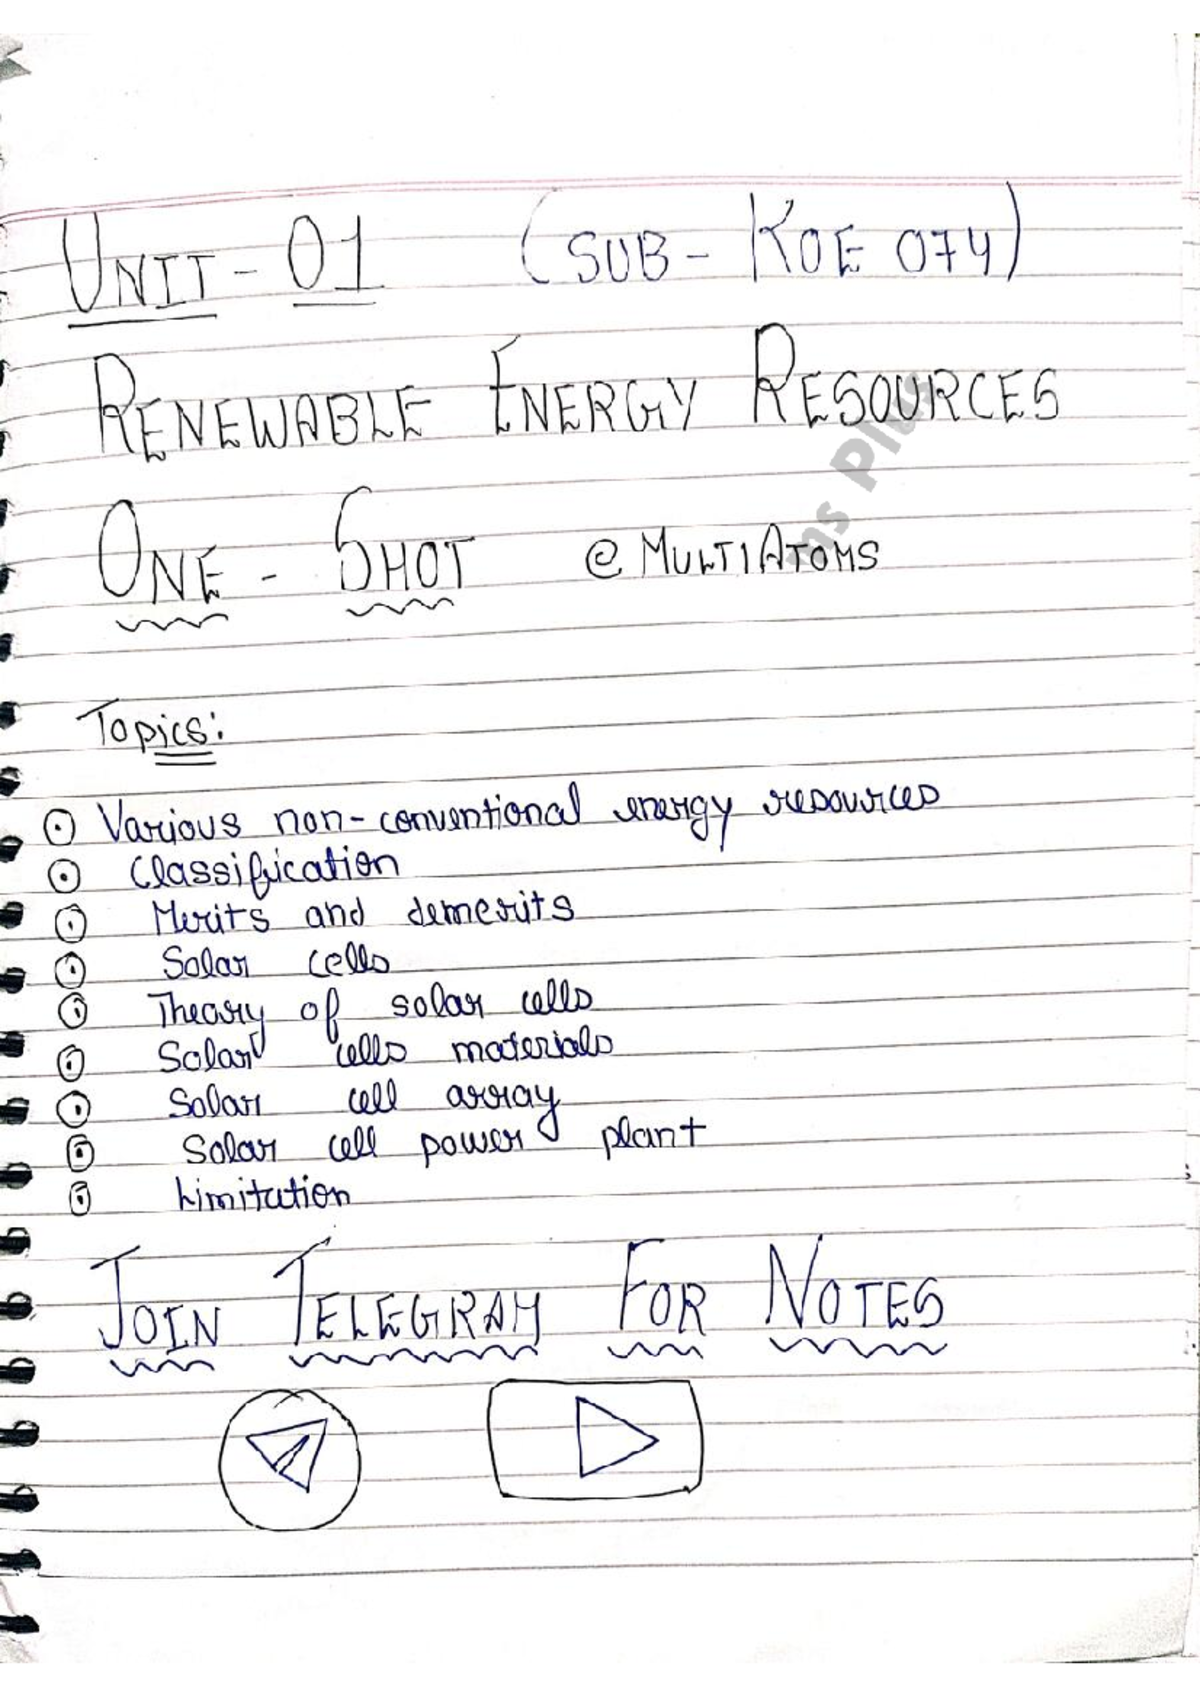 UNIT - 01 (SUB - KOE 074)
RENEWABLE ENERGY RESOURCES
ONE - SHOT @ MULTIATOMS
ms Plus
Topics:
Various non-conventional energy resources
Classification
Merits and demerits
Solar cells
Theory of solar cells
Solar cells materials
Solar cell array
Solar cell power plant
Limitation
JOIN TELEGRAM FOR NOTES